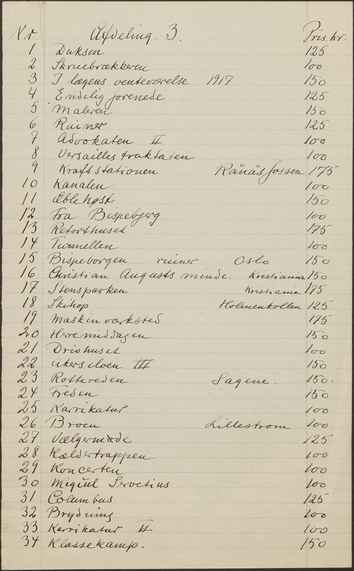 Nr Afdeling. 3. Pris kr.
1 Duksen 125
2 Skruebrækkeren 100
3 I lægens venteværelse 1917 150
4 Endelig forenede 125
5 Maleren 150
6 Ruiner 125
7 Advokaten II 100
8 Versaillestraktaten 100
9 Kraftstationen Rånåsfossen 175
10 Kanalen 100
11 Æblehøst 150
12 Fra Bispebjerg 100
13 Retorthuset 175
14 Tunnellen 100
15 Bispeborgen ruiner Oslo 150
16 Christian Augusts minde. Kristiania 150
17 Stensparken Kristiania 175
18 Skihop Holmenkollen 125
19 Maskinværksted 175
20 Herremiddagen 150
21 Drivhuset 100
22 Akerselven III 150
23 Rotteræden Sagene. 150.
24 Freden 150
25 Karrikatur 100
26 Broen Lillestrøm 100
27 Vælgermøde 125
28 Kældertrappen 100
29 Koncerten 100
30 Miguel Servetius 100
31 Columbus 125
32 Brydning 100
33 Karrikatur II 100
34 Klassekamp. 150